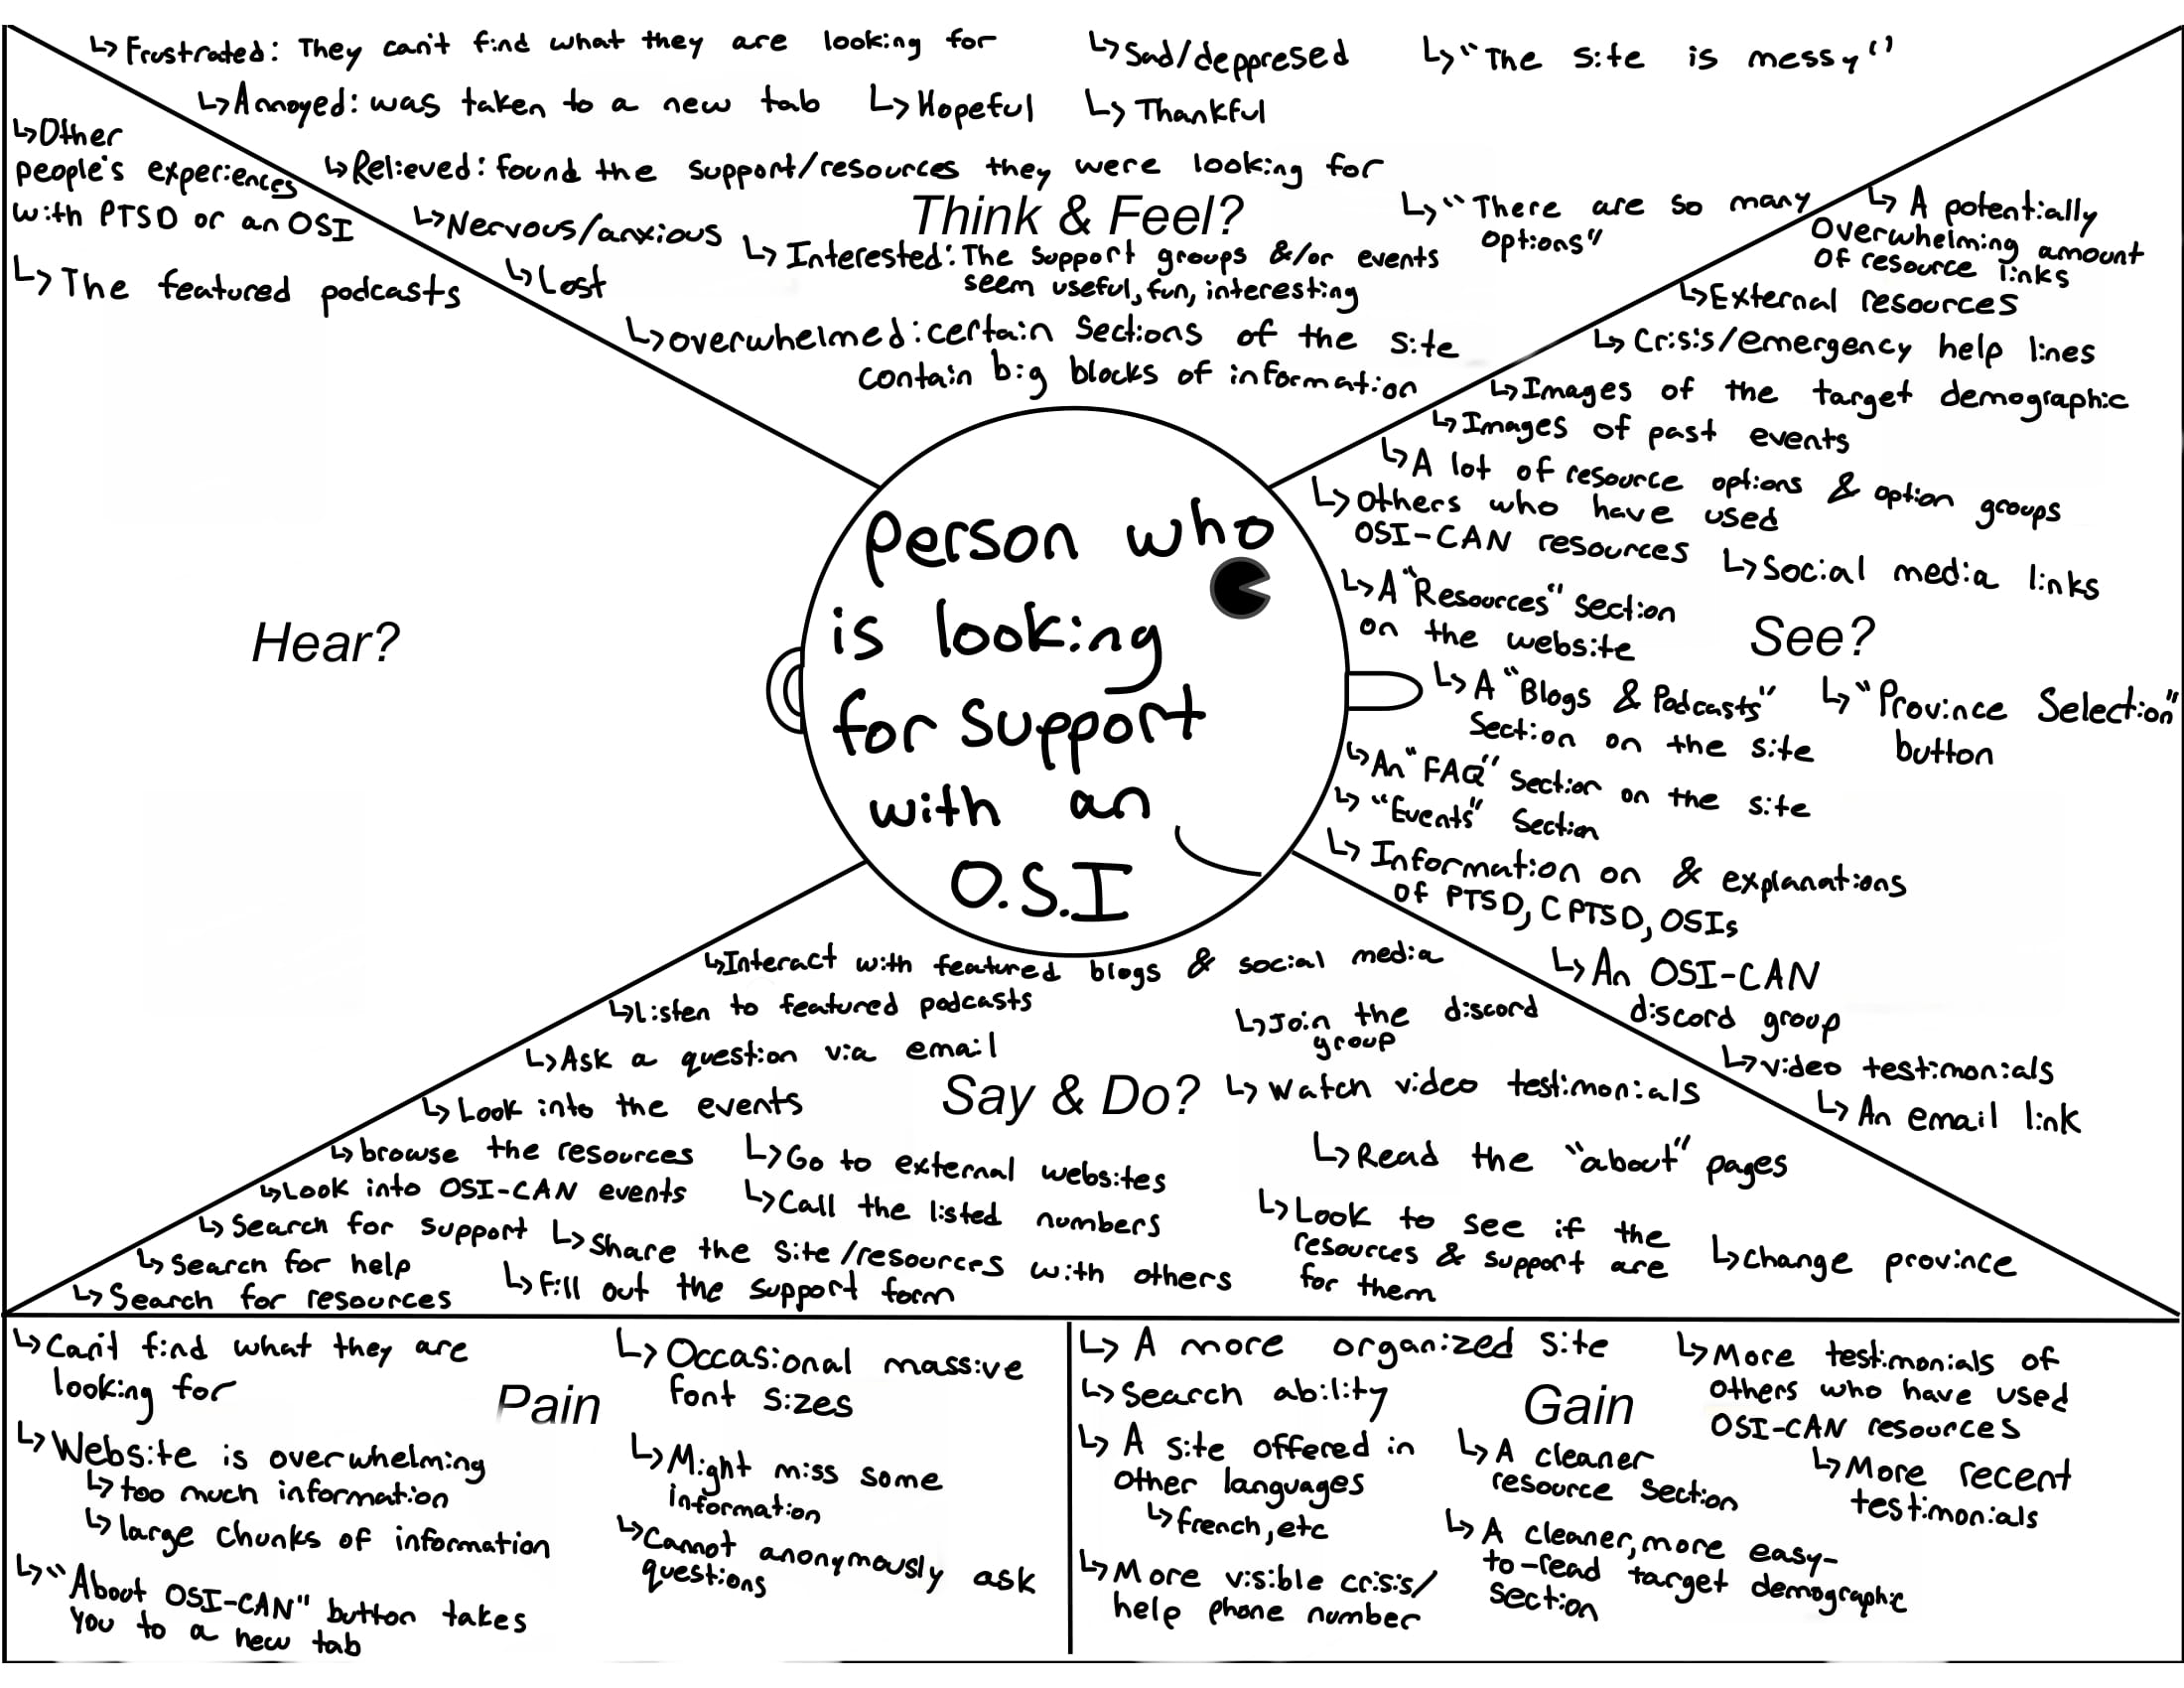 ↳ Frustrated: They can't find what they are looking for
↳ Sad/deppresed
↳ "The site is messy"
↳ Annoyed: was taken to a new tab
↳ Hopeful
↳ Thankful
↳ Relieved: found the support/resources they were looking for
Think & Feel?
↳ Nervous/anxious
↳ "There are so many
options"
↳ Interested: The support groups &/or events
seem useful, fun, interesting
↳ Lost
↳ overwhelmed: certain sections of the site
contain big blocks of information
↳ Other
people's experiences
with PTSD or an OSI
↳ The featured podcasts
Hear?
person who
is looking
for support
with an
O.S.I
↳ A potentially
overwhelming amount
of resource links
↳ External resources
↳ Crisis/emergency help lines
↳ Images of the target demographic
↳ Images of past events
↳ A lot of resource options & option groups
↳ others who have used
OSI-CAN resources
↳ Social media links
↳ A "Resources" section
on the website
See?
↳ A "Blogs & Podcasts"
section on the site
↳ "Province Selection"
button
↳ An "FAQ" section on the site
↳ "Events" Section
↳ Information on & explanations
of PTSD, CPTSD, OSIs
↳ An OSI-CAN
discord group
↳ video testimonials
↳ An email link
↳ Interact with featured blogs & social media
↳ Listen to featured podcasts
↳ Join the discord
group
↳ Ask a question via email
Say & Do?
↳ Watch video testimonials
↳ Look into the events
↳ browse the resources
↳ Go to external websites
↳ Read the "about" pages
↳ Look into OSI-CAN events
↳ Call the listed numbers
↳ Look to see if the
resources & support are
for them
↳ Search for support
↳ Share the site/resources with others
↳ Change province
↳ Search for help
↳ Fill out the support form
↳ Search for resources
↳ Can't find what they are
looking for
Pain
↳ Website is overwhelming
↳ too much information
↳ large chunks of information
↳ "About OSI-CAN" button takes
you to a new tab
↳ Occasional massive
font sizes
↳ Might miss some
information
↳ Cannot anonymously ask
questions
↳ A more organized site
↳ Search ability
↳ A site offered in
other languages
↳ french, etc
↳ More visible crisis/
help phone number
Gain
↳ A cleaner
resource section
↳ A cleaner, more easy-
to-read target demographic
section
↳ More testimonials of
others who have used
OSI-CAN resources
↳ More recent
testimonials